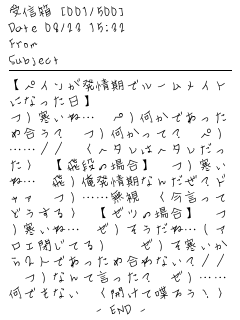 受信箱 [001/500]
Date 08/23 15:32
From
Subject
【ペインが発情期でルームメイト
になった日】
つ）寒いね… ペ）何かであった
め合う？ つ）何かって？ ペ）
……// 《ヘタレはヘタレだっ
た》 【飛段の場合】 つ）寒い
ね… 飛）俺発情期なんだぜ？ド
ヤァ つ）……無視 《今言って
どうする》 【ゼツの場合】 つ
）寒いね… ゼ）そうだね…（ア
ロエ閉じてる） ゼ）寒いか
らストであっため合わない？//
つ）なんて言った？ ゼ）……
何でもない 《開けて喋ろう！》
- END -